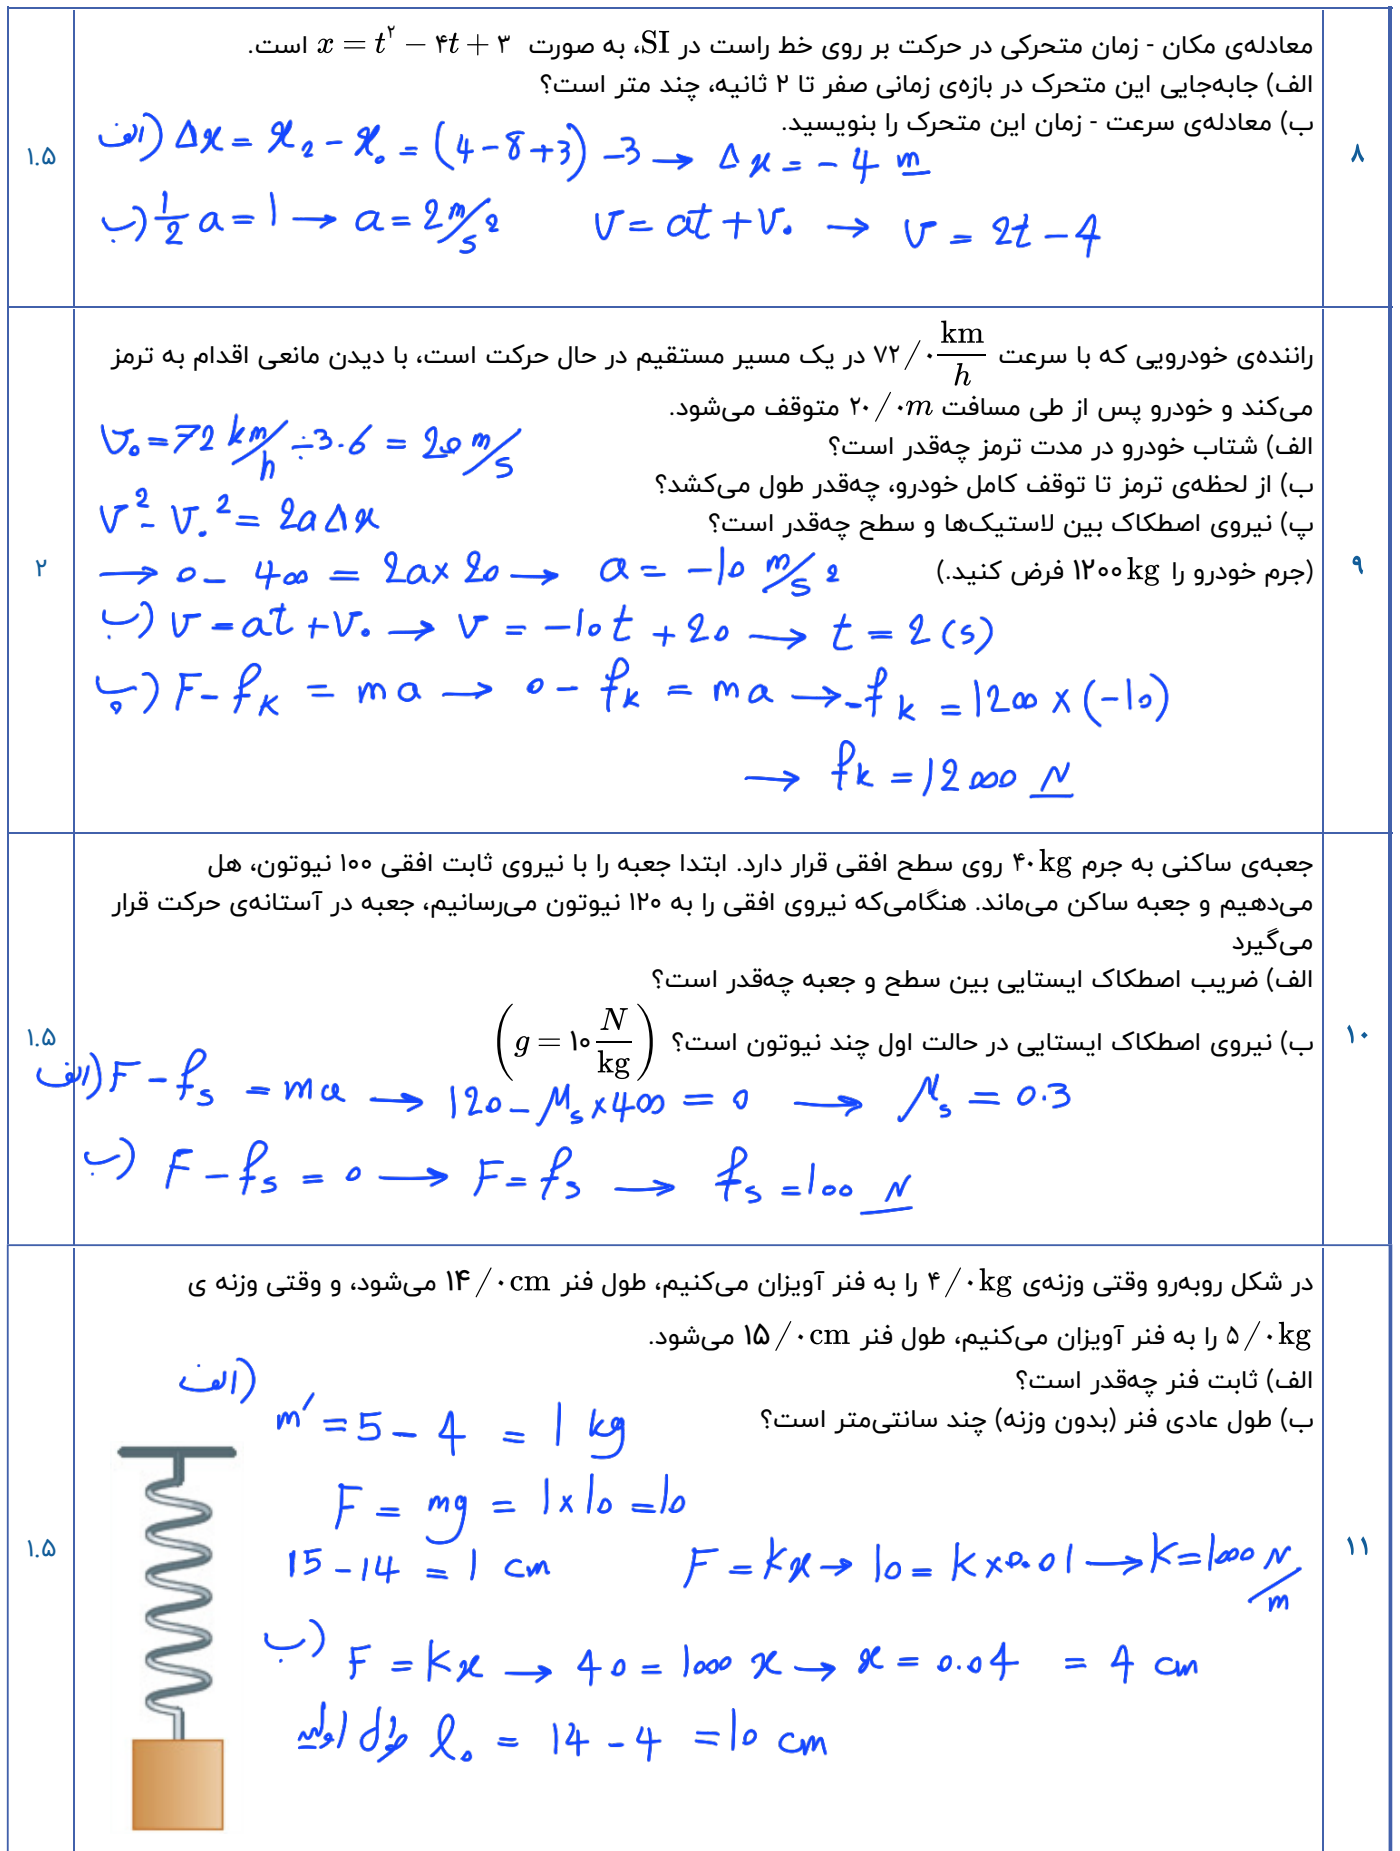 ۸
معادله‌ی مکان - زمان متحرکی در حرکت بر روی خط راست در SI، به صورت x = t^۲ − ۴t + ۳ است.
الف) جابه‌جایی این متحرک در بازه‌ی زمانی صفر تا ۲ ثانیه، چند متر است؟
ب) معادله‌ی سرعت - زمان این متحرک را بنویسید.
الف) Δx = x₂ − x₀ = (4 − 8 + 3) − 3 → Δx = −4 m
ب) 1/2 a = 1 → a = 2 m/s² v = at + v₀ → v = 2t − 4
۱.۵
۹
راننده‌ی خودرویی که با سرعت ۷۲/۰ km/h در یک مسیر مستقیم در حال حرکت است، با دیدن مانعی اقدام به ترمز
می‌کند و خودرو پس از طی مسافت ۲۰/۰m متوقف می‌شود.
الف) شتاب خودرو در مدت ترمز چه‌قدر است؟
ب) از لحظه‌ی ترمز تا توقف کامل خودرو، چه‌قدر طول می‌کشد؟
پ) نیروی اصطکاک بین لاستیک‌ها و سطح چه‌قدر است؟
(جرم خودرو را ۱۲۰۰ kg فرض کنید.)
v₀ = 72 km/h ÷ 3.6 = 20 m/s
v² − v₀² = 2aΔx
→ 0 − 400 = 2a × 20 → a = −10 m/s²
ب) v = at + v₀ → v = −10t + 20 → t = 2 (s)
پ) F − fk = ma → 0 − fk = ma → −fk = 1200 × (−10)
→ fk = 12000 N
۲
۱۰
جعبه‌ی ساکنی به جرم ۴۰ kg روی سطح افقی قرار دارد. ابتدا جعبه را با نیروی ثابت افقی ۱۰۰ نیوتون، هل
می‌دهیم و جعبه ساکن می‌ماند. هنگامی‌که نیروی افقی را به ۱۲۰ نیوتون می‌رسانیم، جعبه در آستانه‌ی حرکت قرار
می‌گیرد
الف) ضریب اصطکاک ایستایی بین سطح و جعبه چه‌قدر است؟
ب) نیروی اصطکاک ایستایی در حالت اول چند نیوتون است؟ (g = ۱۰ N/kg)
الف) F − fs = ma → 120 − μs × 400 = 0 → μs = 0.3
ب) F − fs = 0 → F = fs → fs = 100 N
۱.۵
۱۱
در شکل روبه‌رو وقتی وزنه‌ی ۴/۰ kg را به فنر آویزان می‌کنیم، طول فنر ۱۴/۰ cm می‌شود، و وقتی وزنه ی
۵/۰ kg را به فنر آویزان می‌کنیم، طول فنر ۱۵/۰ cm می‌شود.
الف) ثابت فنر چه‌قدر است؟
ب) طول عادی فنر (بدون وزنه) چند سانتی‌متر است؟
الف)
m′ = 5 − 4 = 1 kg
F = mg = 1×10 = 10
15 − 14 = 1 cm F = kx → 10 = k × 0.01 → k = 1000 N/m
ب) F = kx → 40 = 1000 x → x = 0.04 = 4 cm
طول اولیه l₀ = 14 − 4 = 10 cm
۱.۵